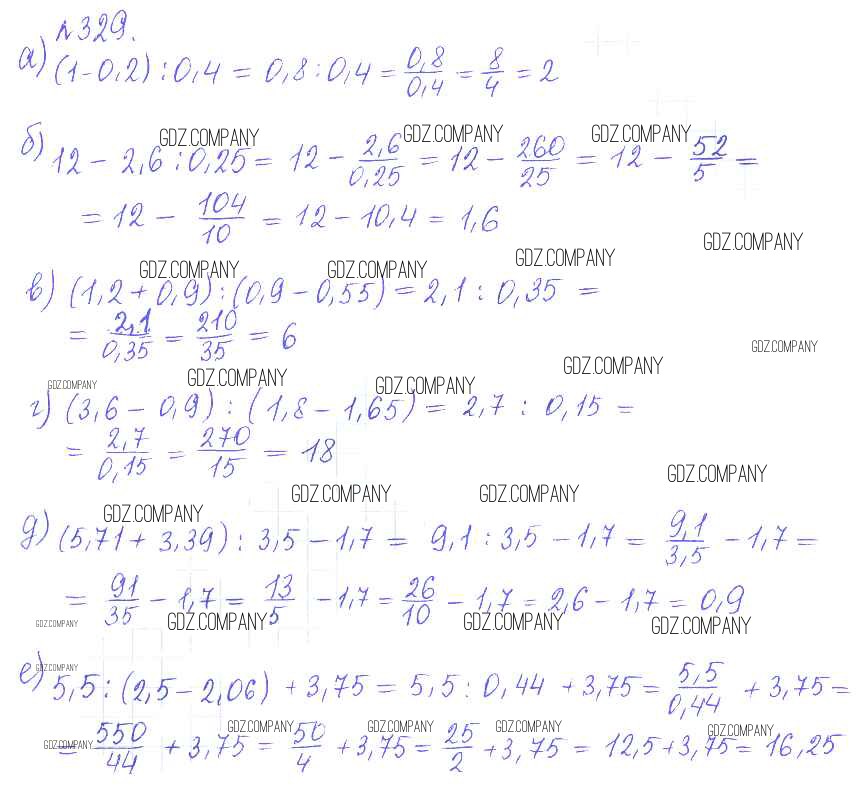 №329.
а) (1-0,2) : 0,4 = 0,8 : 0,4 = 0,8/0,4 = 8/4 = 2
GDZ.COMPANY GDZ.COMPANY GDZ.COMPANY
б) 12 - 2,6 : 0,25 = 12 - 2,6/0,25 = 12 - 260/25 = 12 - 52/5 =
= 12 - 104/10 = 12 - 10,4 = 1,6
GDZ.COMPANY
GDZ.COMPANY GDZ.COMPANY GDZ.COMPANY
в) (1,2 + 0,9) : (0,9 - 0,55) = 2,1 : 0,35 =
= 2,1/0,35 = 210/35 = 6
GDZ.COMPANY
GDZ.COMPANY GDZ.COMPANY GDZ.COMPANY GDZ.COMPANY
г) (3,6 - 0,9) : (1,8 - 1,65) = 2,7 : 0,15 =
= 2,7/0,15 = 270/15 = 18
GDZ.COMPANY
GDZ.COMPANY GDZ.COMPANY GDZ.COMPANY
д) (5,71 + 3,39) : 3,5 - 1,7 = 9,1 : 3,5 - 1,7 = 9,1/3,5 - 1,7 =
= 91/35 - 1,7 = 13/5 - 1,7 = 26/10 - 1,7 = 2,6 - 1,7 = 0,9
GDZ.COMPANY GDZ.COMPANY GDZ.COMPANY GDZ.COMPANY
GDZ.COMPANY
е) 5,5 : (2,5 - 2,06) + 3,75 = 5,5 : 0,44 + 3,75 = 5,5/0,44 + 3,75 =
GDZ.COMPANY GDZ.COMPANY GDZ.COMPANY GDZ.COMPANY GDZ.COMPANY
= 550/44 + 3,75 = 50/4 + 3,75 = 25/2 + 3,75 = 12,5 + 3,75 = 16,25